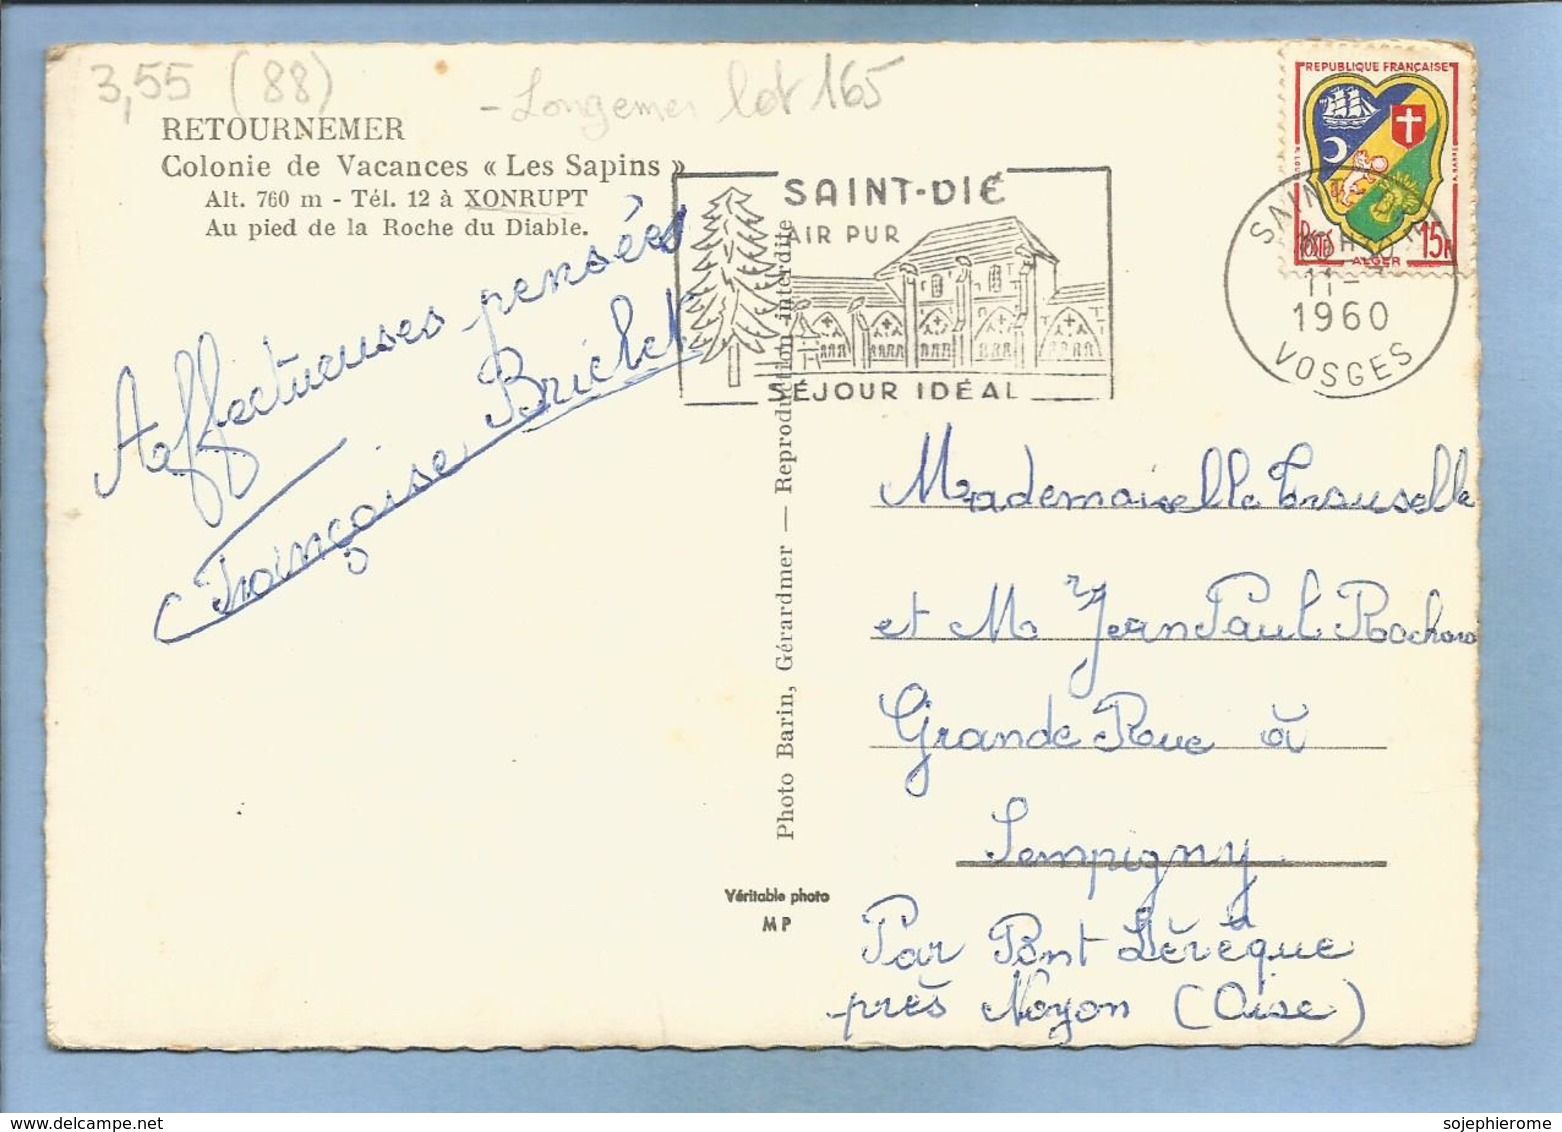 3,55 (88)
- Longemer lot 165
RETOURNEMER
Colonie de Vacances « Les Sapins »
Alt. 760 m - Tél. 12 à XONRUPT
Au pied de la Roche du Diable.
Affectueuses pensées
Françoise Brichet
Photo Barin, Gérardmer — Reproduction interdite
Véritable photo
M P
SAINT-DIÉ
AIR PUR
SÉJOUR IDÉAL
REPUBLIQUE FRANÇAISE
POSTES 15F
ALGER
SAINT
11-
1960
VOSGES
Mademoiselle Trouselle
et Mr Jean Paul Rochard
Grande Rue à
Sempigny
Par Pont Lévêque
près Noyon (Oise)
sojephierome